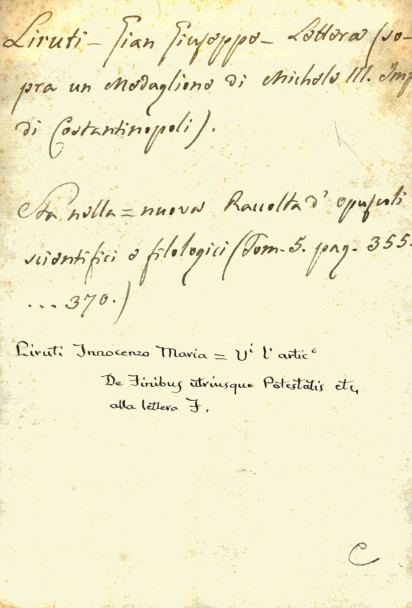 Liruti - Gian Giuseppe - Lettera (so-
pra un Medaglione di Michele III. Imp
di Costantinopoli).
Sta nella = nuova Raccolta d' opuscoli
scientifici e filologici (Tom. 5. pag. 355.
... 370.)
Liruti Innocenzo Maria = Vi l'artic.e
De Finibus utriusque Potestatis etc
alla lettera F.
C